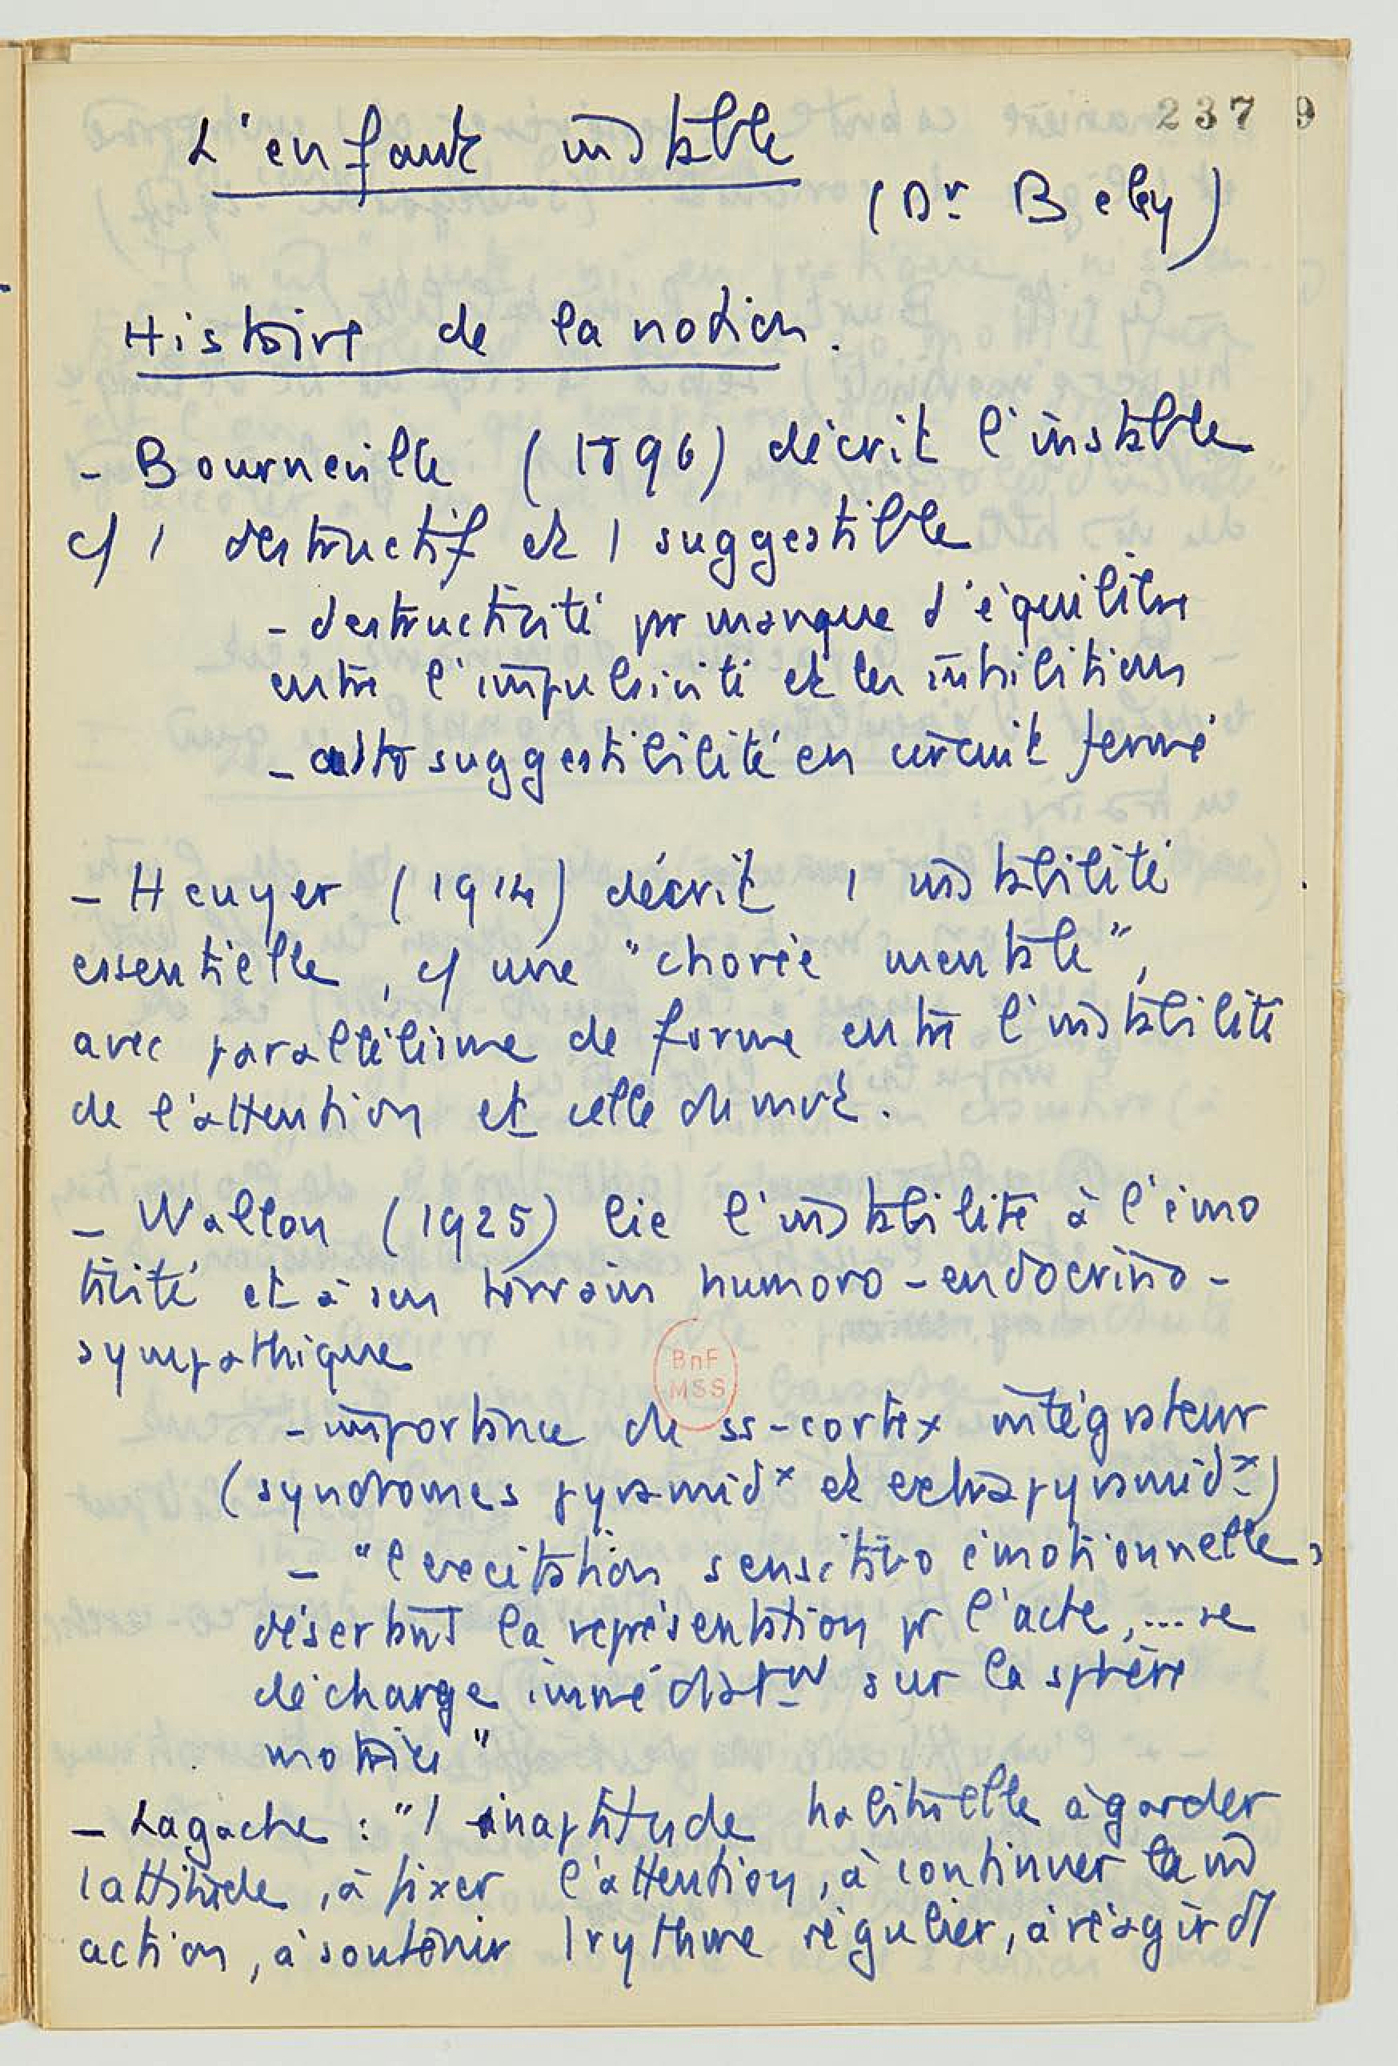 237 9
L'enfant instable
(Dr Beley)
Histoire de la notion.
- Bourneville (1896) décrit l'instable
c/ 1 destructif et 1 suggestible
- destructivité pr manque d'équilibre
entre l'impulsivité et les inhibitions
- auto suggestibilité en circuit fermé
- Heuyer (1914) décrit 1 instabilité
essentielle, c/ une "chorée mentale",
avec parallélisme de forme entre l'instabilité
de l'attention et celle du mvt.
- Wallon (1925) lie l'instabilité à l'émo
tivité et à son terrain humoro-endocrino-
sympathique
BnF
MSS
- importance du ss-cortex intégrateur
(syndromes pyramidx et extrapyramidx)
- "l'excitation sensitivo émotionnelle,
désertant la représentation pr l'acte, ... se
décharge immédiatmt sur la sphère
motrice"
- Lagache : "1 inaptitude habituelle à garder
l attitude, à fixer l'attention, à continuer
action, à soutenir 1 rythme régulier, à réagir ds